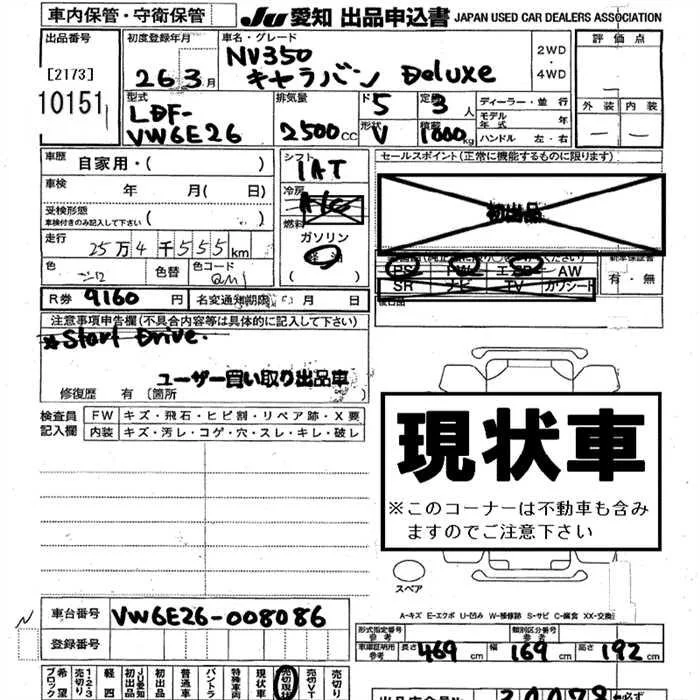 車内保管・守衛保管
JU 愛知 出品申込書 JAPAN USED CAR DEALERS ASSOCIATION
出品番号
[2173]
10151
初度登録年月
26 3 月
車名・グレード
NV350
キャラバン Deluxe
2WD
・
4WD
評価点
外装 内装
型式
LDF-
VW6E26
排気量
2500cc
ド 5
形状 V
定員 3人
積載 1000kg
ディーラー・並行
モデル年式 年
ハンドル 左・右
車歴 自家用・( )
車検 年 月( 日)
受検形態
車検付きのみ記入して下さい ( )
走行 25万4千555km
色 色替 色コード
シフト
IAT
冷房
A/C
燃料
ガソリン
( )
セールスポイント (正常に機能するものに限ります)
初出品
PS PW エアB AW
SR ナビ TV カワシート
新車保証書
有・無
後日品
R券 9160 円 名変通知期限 月 日
注意事項申告欄 (不具合内容等は具体的に記入して下さい)
※Start Drive.
ユーザー買い取り出品車
修復歴 有 〔箇所
検査員
記入欄
FW キズ・飛石・ヒビ割・リペア跡・X要
内装 キズ・汚レ・コゲ・穴・スレ・キレ・破レ
現状車
※このコーナーは不動車も含み
ますのでご注意下さい
スペア
A-キズ E-エクボ U-凹み W-補修跡 S-サビ C-腐食 XX-交換
車台番号 VW6E26-008086
登録番号
形式指定番号
参考
類別区分番号
参考
車庫証明用
参考
長さ 469 cm 幅 169 cm 高さ 192 cm
希望ブロック
1・2・3売切り
軽四
JU愛知初出品
初出品
普通車
バントラ
特殊車両
現状車
売切現状
売切VT
売切り